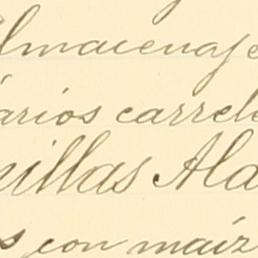 Almacenaje
arios carrele
nillas Ala
s con maíz